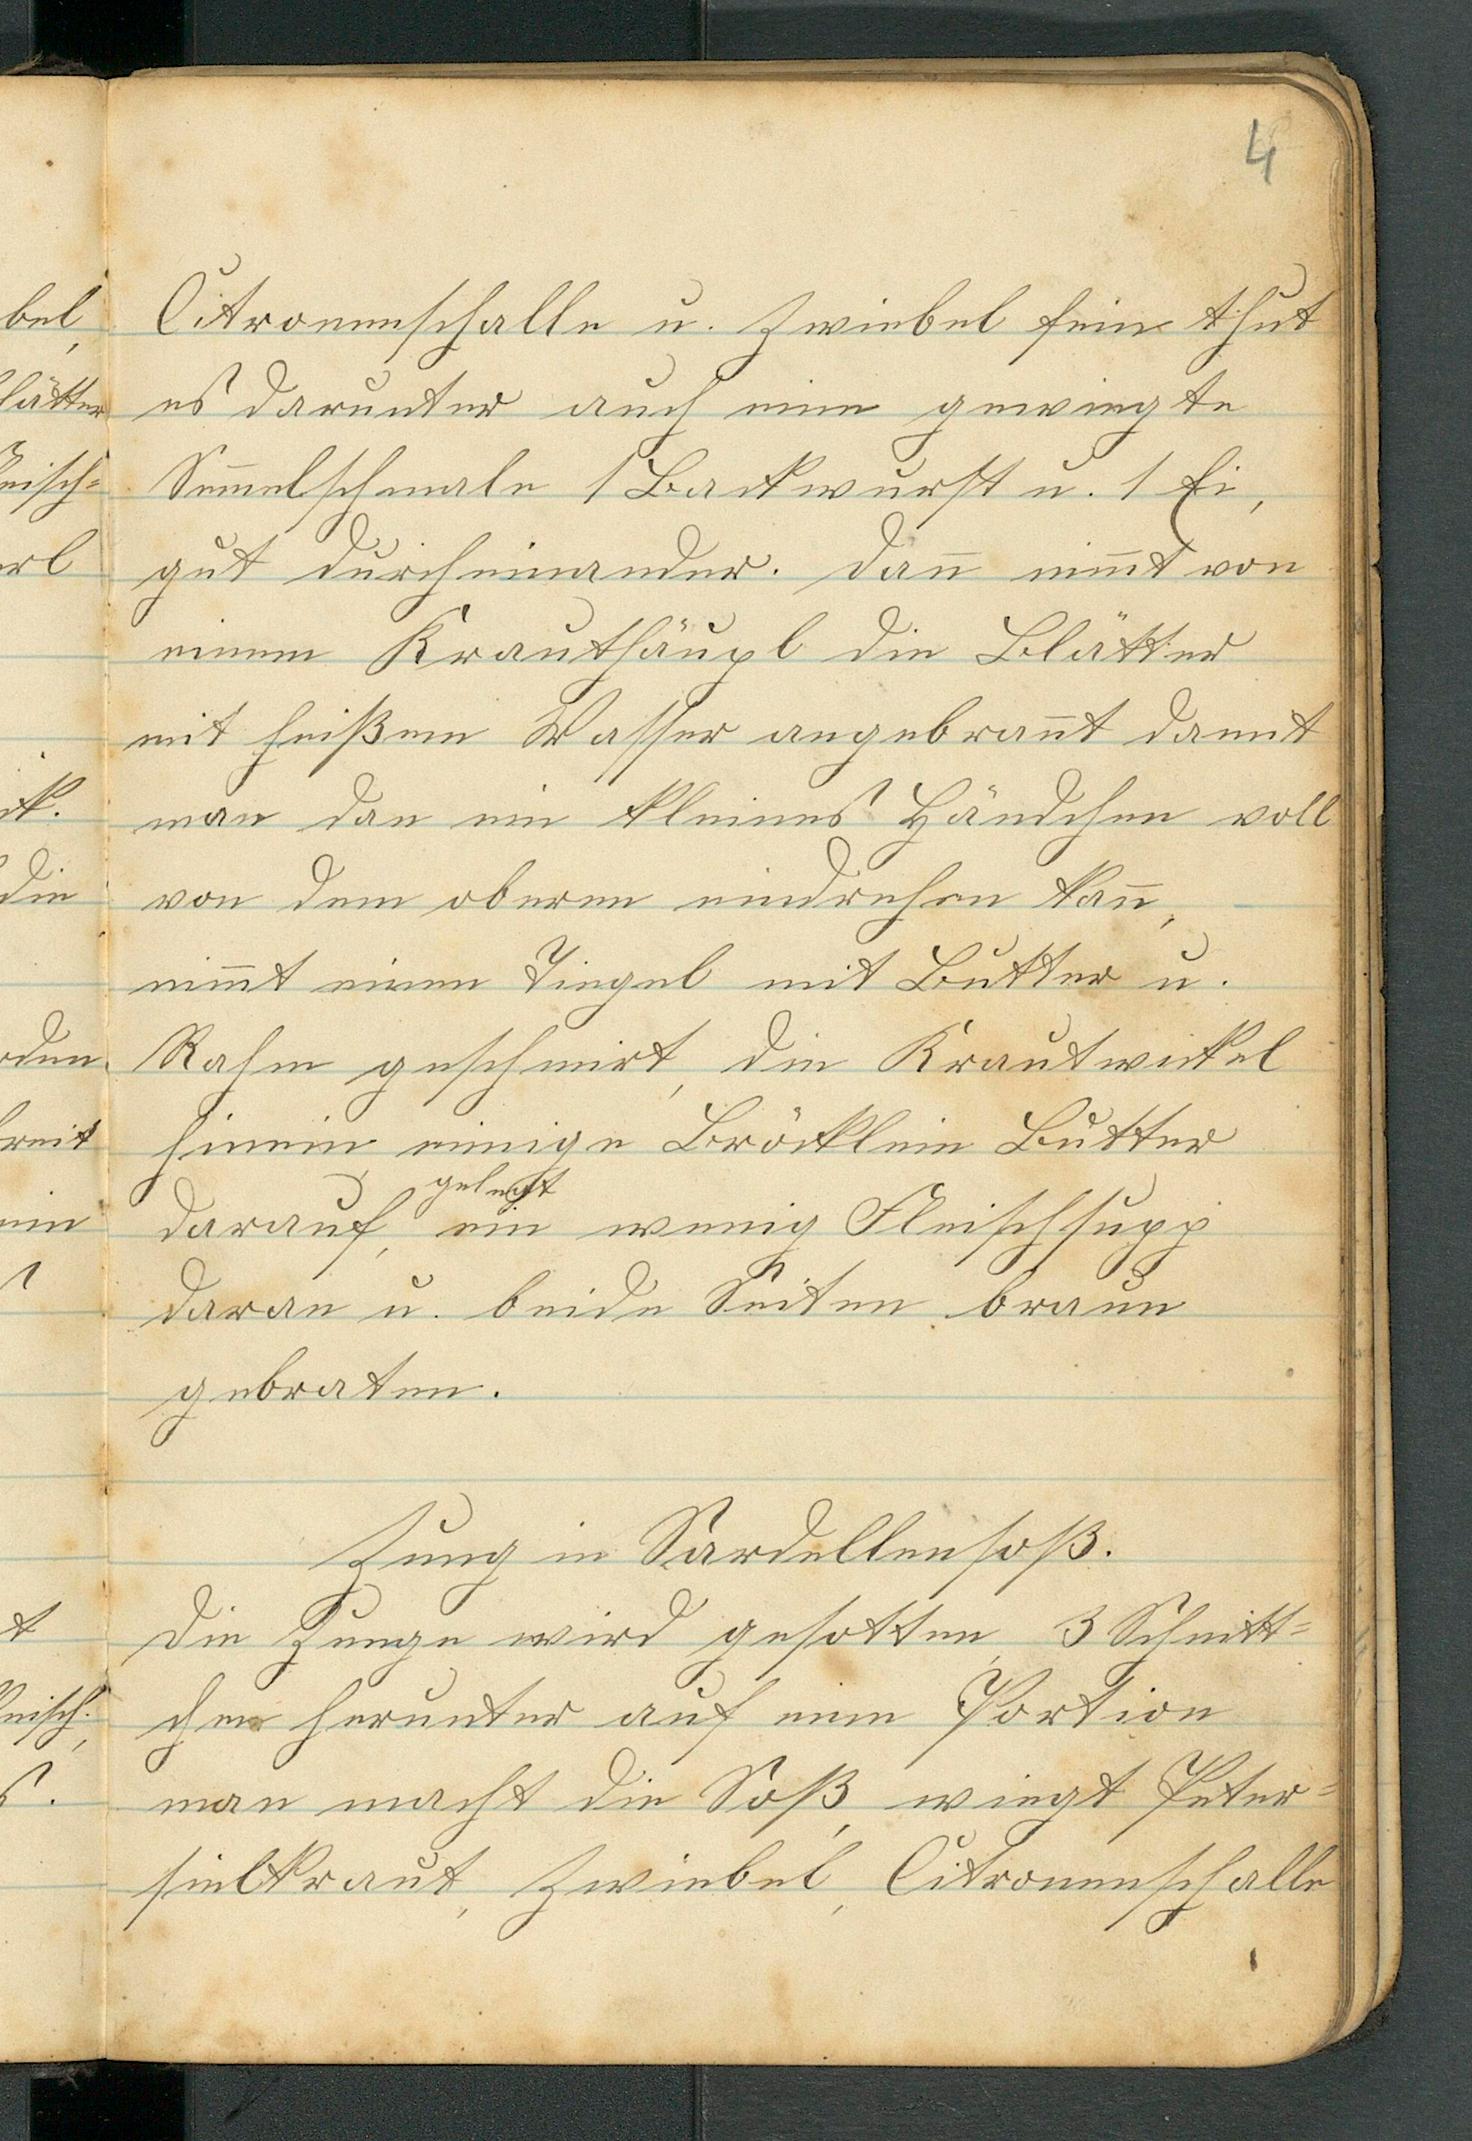 4
Citronenschalle u. Zwiebel fein thut
es darunter auch eine gewiegte
Sem̄elschmale 1 Backwurst u. 1 Ei,
gut durcheinander. dan̄ nim̄t von
einem Krauthäupl die Blätter
mit heißem Wasser angebran̄t damit
man dan ein kleines Händchen voll
von dem oberen eindrehen kan̄,
nim̄t einen Tiegel mit Butter u.
Rahm geschmirt, die Krautwickel
hinein einige Bröcklein Butter
gelegt
darauf, ein wenig Fleischsupp
daran u. beide Seiten braun
gebraten.
Zung in Sardellensoß.
die Zunge wird gesotten, 3 Schnitt=
chen herunter auf eine Portion
man macht die Soß, wiegt Peter=
sielkraut, Zwiebel, Citronenschalle